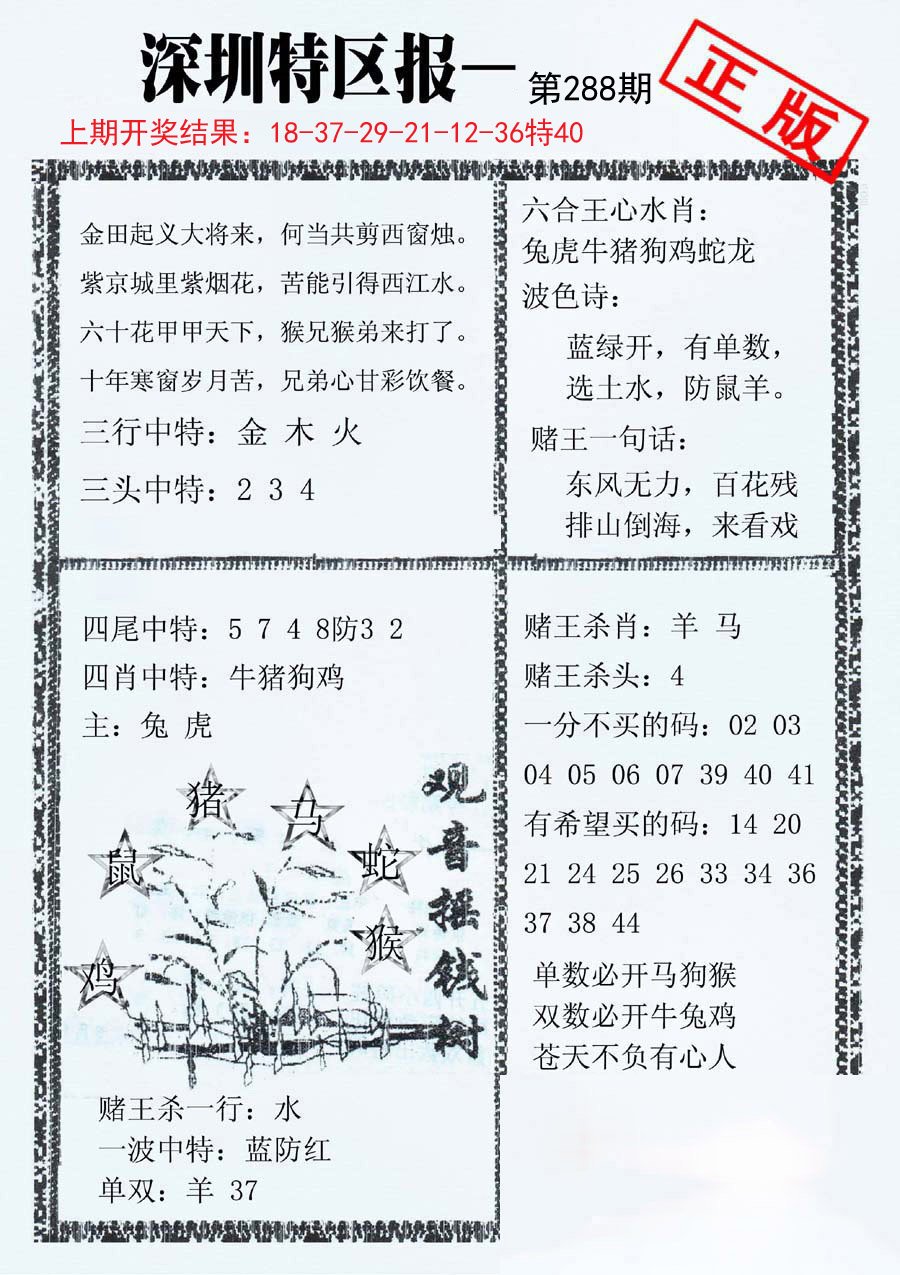 深圳特区报一
第288期
正版
上期开奖结果：18-37-29-21-12-36特40
金田起义大将来，何当共剪西窗烛。
紫京城里紫烟花，苦能引得西江水。
六十花甲甲天下，猴兄猴弟来打了。
十年寒窗岁月苦，兄弟心甘彩饮餐。
三行中特：金 木 火
三头中特：2 3 4
六合王心水肖：
兔虎牛猪狗鸡蛇龙
波色诗：
蓝绿开，有单数，
选土水，防鼠羊。
赌王一句话：
东风无力，百花残
排山倒海，来看戏
四尾中特：5 7 4 8防3 2
四肖中特：牛猪狗鸡
主：兔 虎
猪
马
鼠
蛇
猴
鸡
观音摇钱树
赌王杀一行：水
一波中特：蓝防红
单双：羊 37
赌王杀肖：羊 马
赌王杀头：4
一分不买的码：02 03
04 05 06 07 39 40 41
有希望买的码：14 20
21 24 25 26 33 34 36
37 38 44
单数必开马狗猴
双数必开牛兔鸡
苍天不负有心人